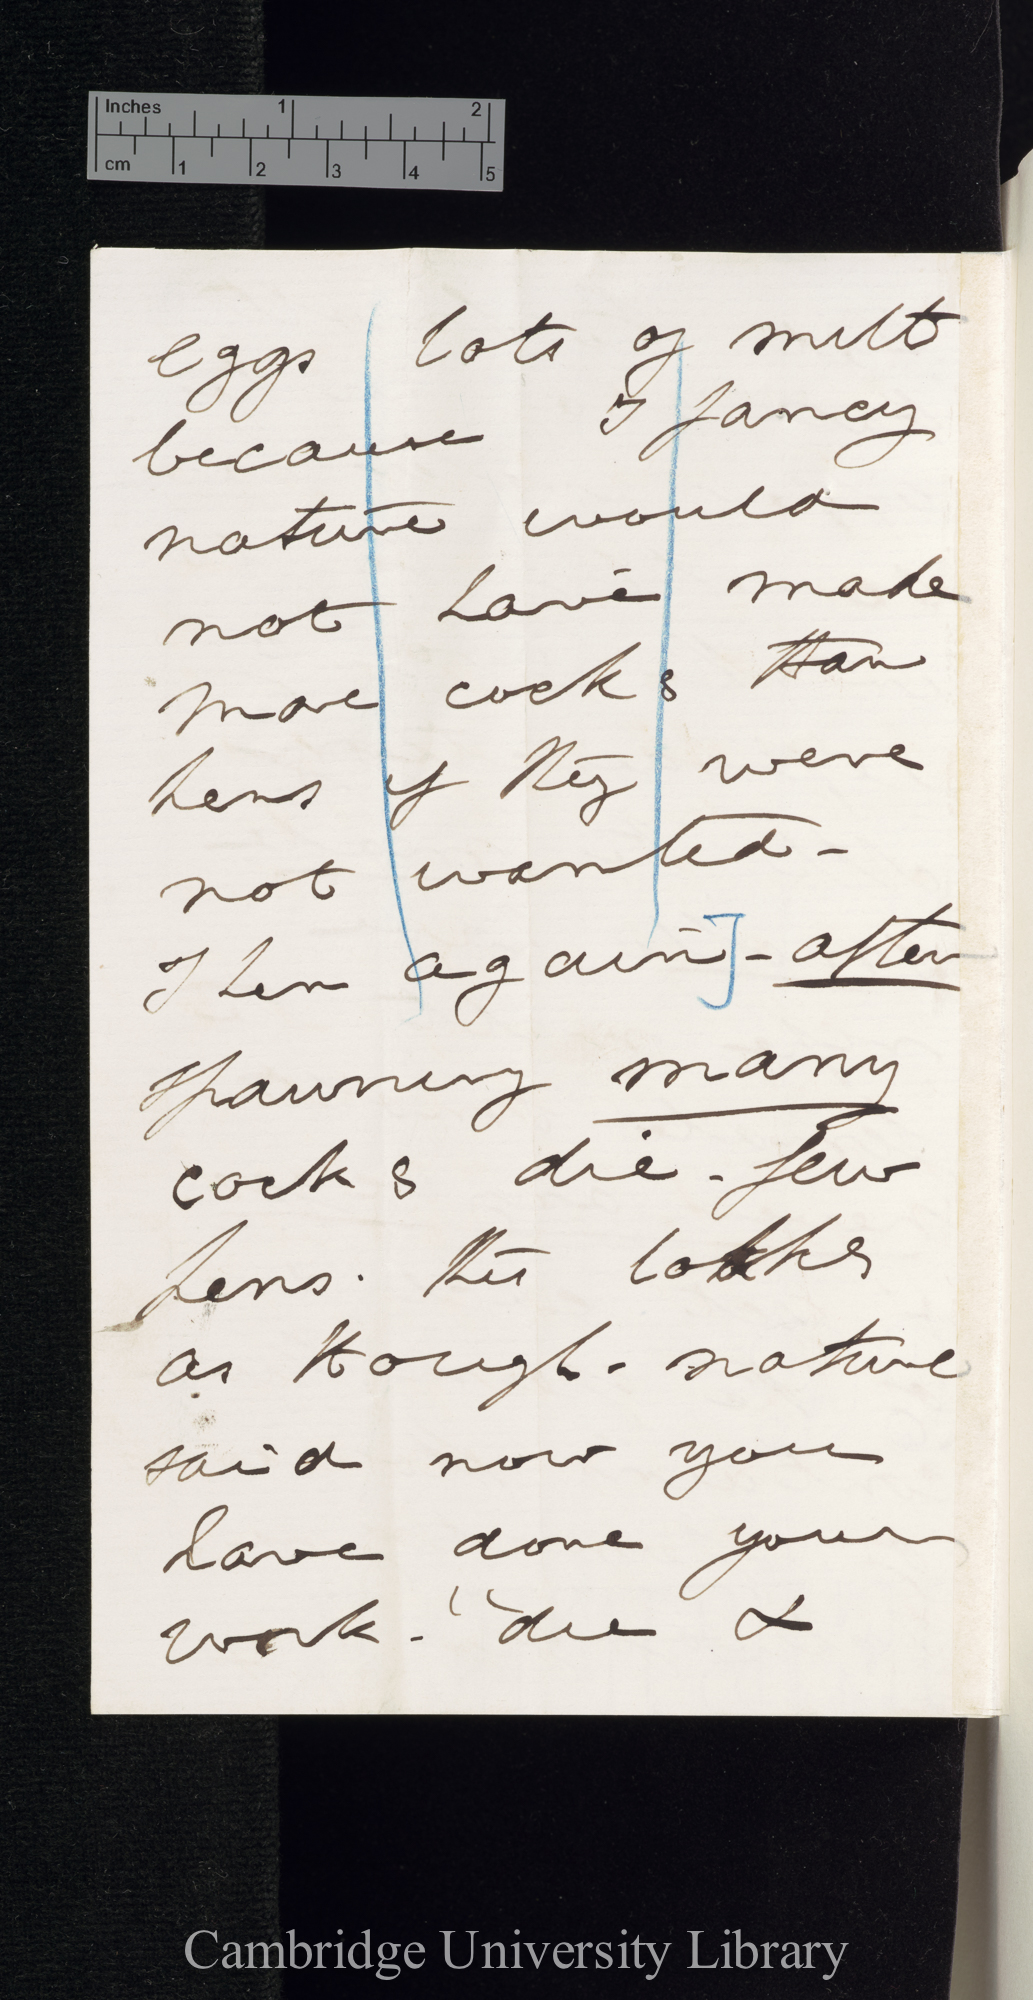 Inches 1 2
cm 1 2 3 4 5
eggs lots of milt
because I fancy
nature would
not have made
more cocks than
hens if they were
not wanted -
Then again] - after
spawning many
cocks die - few
hens. this looks
as though - nature
said now you
have done your
work - "die &
Cambridge University Library